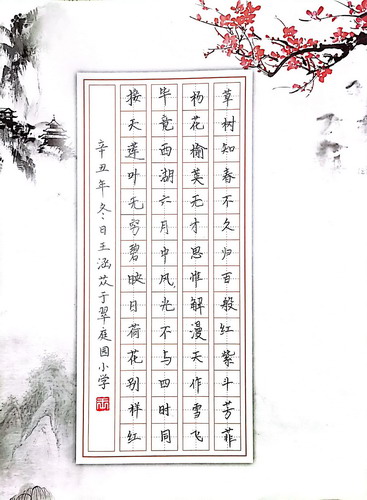 草树知春不久归百般红紫斗芳菲
杨花榆荚无才思惟解漫天作雪飞
毕竟西湖六月中风光不与四时同
接天莲叶无穷碧映日荷花别样红
辛丑年冬日王涵苡于翠庭园小学